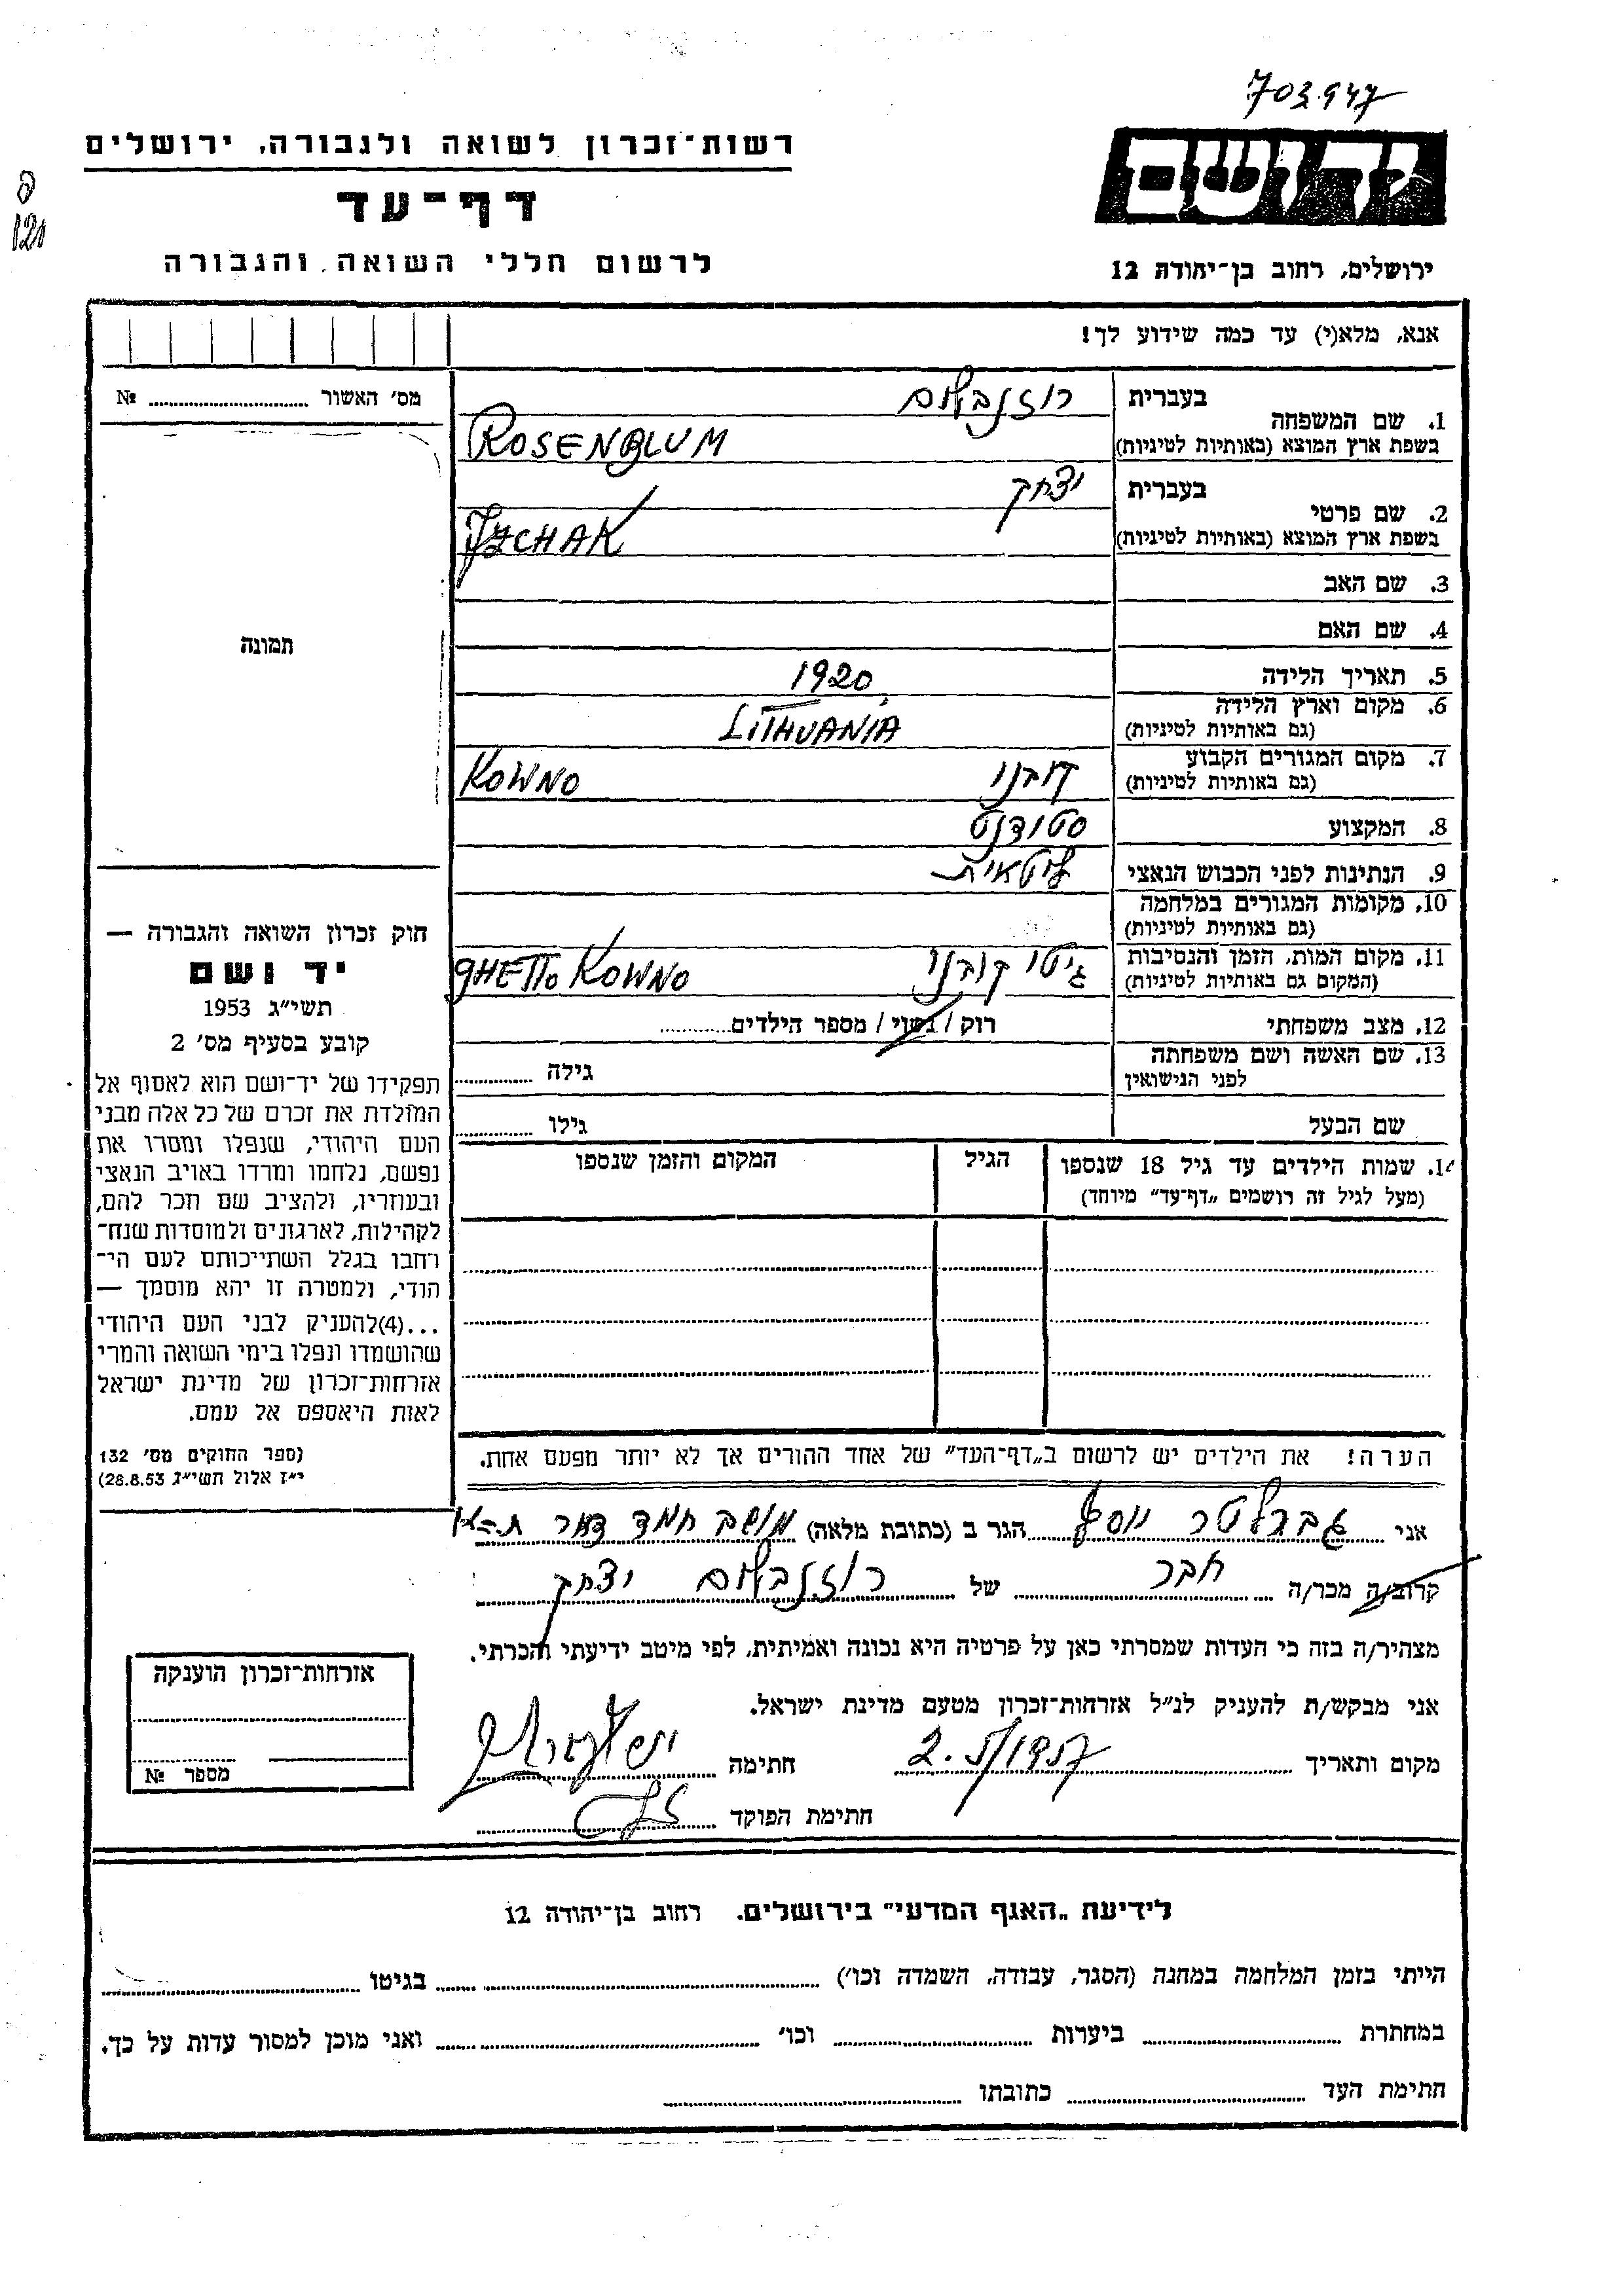 703.947
רשות־זכרון לשואה ולגבורה, ירושלים
יד ושם
דף־עד
לרשום חללי השואה והגבורה
ירושלים, רחוב בן־יהודה 12
120
אנא, מלא(י) עד כמה שידוע לך!
מס׳ האשור № ........
1. שם המשפחה בעברית רוזנבלום
בשפת ארץ המוצא (באותיות לטיניות) ROSENBLUM
2. שם פרטי בעברית יצחק
בשפת ארץ המוצא (באותיות לטיניות) IZCHAK
3. שם האב
4. שם האם
תמונה
5. תאריך הלידה 1920
6. מקום וארץ הלידה LITHUANIA
(גם באותיות לטיניות)
7. מקום המגורים הקבוע קובנו KOWNO
(גם באותיות לטיניות)
8. המקצוע סטודנט
9. הנתינות לפני הכבוש הנאצי ליטאית
10. מקומות המגורים במלחמה
(גם באותיות לטיניות)
11. מקום המות, הזמן והנסיבות גיטו קובנו GHETTO KOWNO
(המקום גם באותיות לטיניות)
12. מצב משפחתי רוק / נשוי / מספר הילדים........
13. שם האשה ושם משפחתה גילה ........
לפני הנישואין
שם הבעל גילו ........
14. שמות הילדים עד גיל 18 שנספו הגיל המקום והזמן שנספו
(מעל לגיל זה רושמים „דף־עד״ מיוחד)
חוק זכרון השואה והגבורה —
יד ושם
תשי״ג 1953
קובע בסעיף מס׳ 2
תפקידו של יד־ושם הוא לאסוף אל
המולדת את זכרם של כל אלה מבני
העם היהודי, שנפלו ומסרו את
נפשם, נלחמו ומרדו באויב הנאצי
ובעוזריו, ולהציב שם וזכר להם,
לקהילות, לארגונים ולמוסדות שנח־
רחבו בגלל השתייכותם לעם הי־
הודי, ולמטרה זו יהא מוסמך —
...(4)להעניק לבני העם היהודי
שהושמדו ונפלו בימי השואה והמרי
אזרחות־זכרון של מדינת ישראל
לאות היאספם אל עמם.
(ספר החוקים מס׳ 132
י״ז אלול תשי״ג 28.8.53)
הערה! את הילדים יש לרשום ב„דף־העד״ של אחד ההורים אך לא יותר מפעם אחת.
אני גברלטר יוסף הגר ב (כתובת מלאה) מושב חמד דאר ת-א
קרוב/ה מכר/ה חבר של רוזנבלום יצחק
מצהיר/ה בזה כי העדות שמסרתי כאן על פרטיה היא נכונה ואמיתית, לפי מיטב ידיעתי והכרתי.
אני מבקש/ת להעניק לנ״ל אזרחות־זכרון מטעם מדינת ישראל.
מקום ותאריך 2.5/1957 חתימה
חתימת הפוקד
אזרחות־זכרון הוענקה
מספר №
לידיעת „האגף המדעי״ בירושלים, רחוב בן־יהודה 12
הייתי בזמן המלחמה במחנה (הסגר, עבודה, השמדה וכו׳) ........ בגיטו ........
במחתרת ........ ביערות ........ וכו׳ ........ ואני מוכן למסור עדות על כך.
חתימת העד ........ כתובתו ........